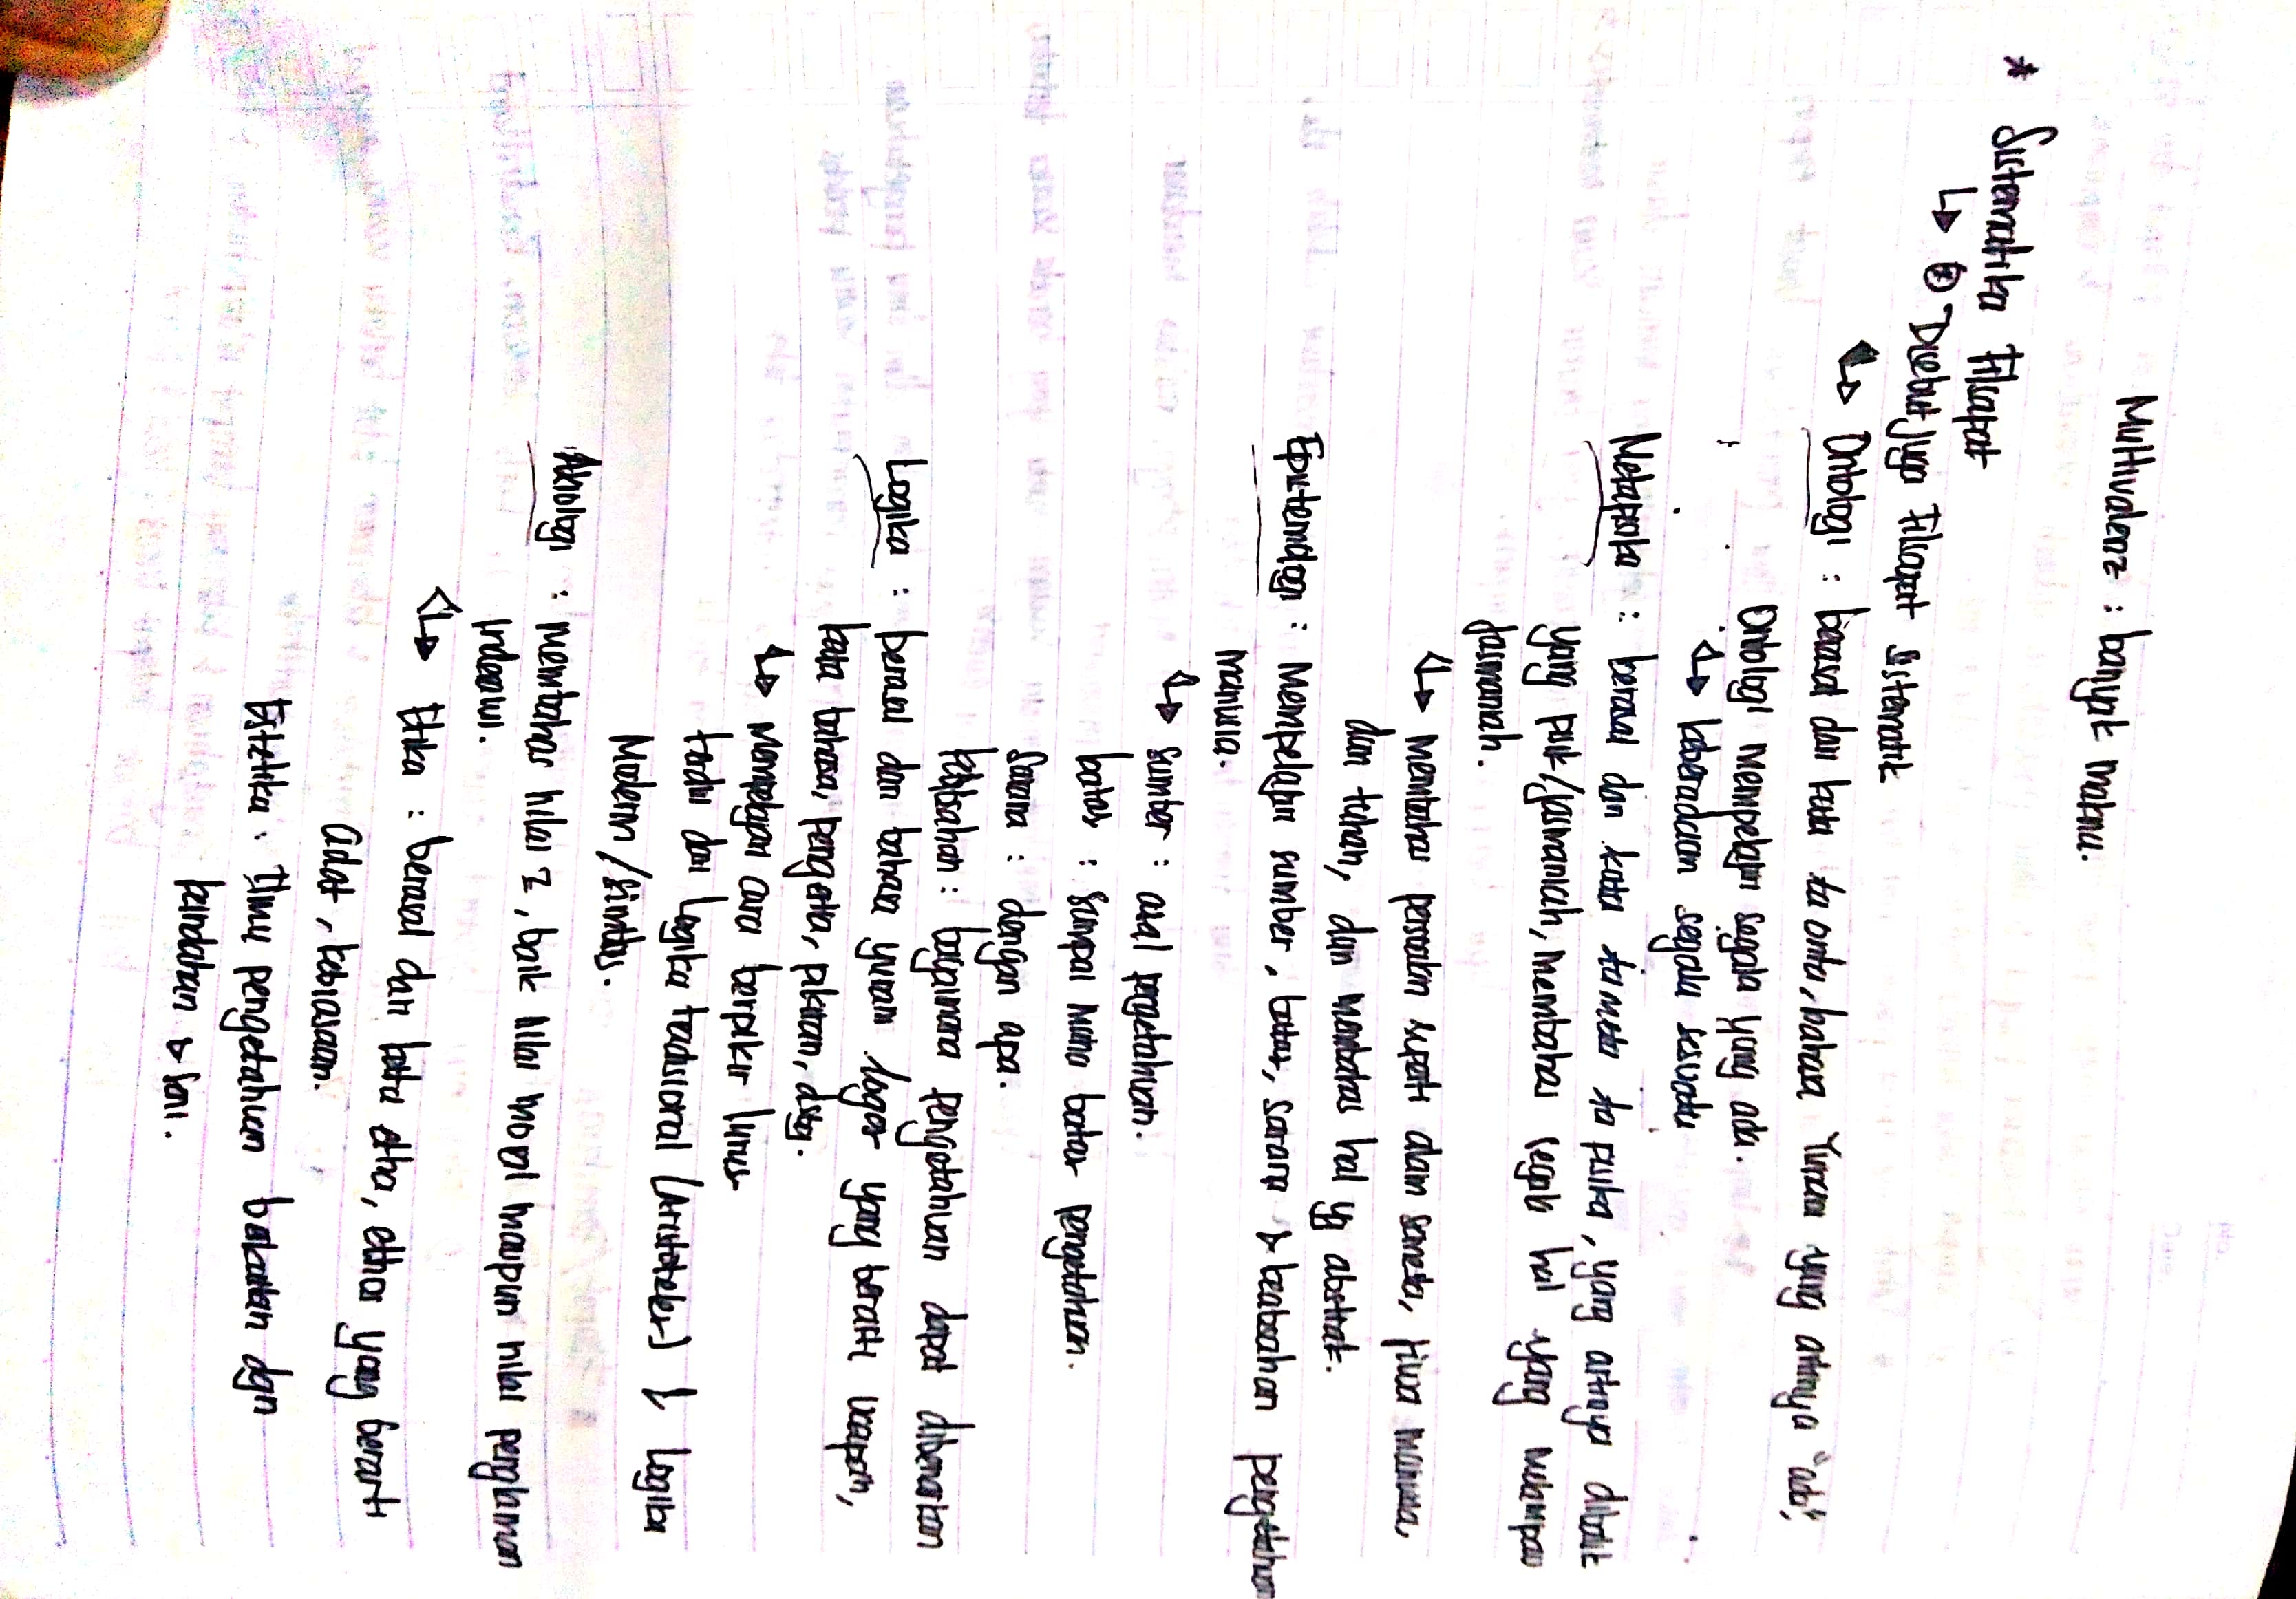 Multivalenz : banyak makna.
* Sistematika Filsafat
↳ Disebut juga Filsafat Sistematik
↳ Ontologi : berasal dari kata ta onta, bahasa Yunani yang artinya "ada",
Ontologi mempelajari segala yang ada.
↳ keberadaan segala sesuatu
Metafisika : berasal dari kata ta meta ta fisika, yang artinya dibalik
yang fisik/jasmaniah, membahas segala hal yang melampaui
jasmaniah.
↳ Membahas persoalan seperti alam semesta, jiwa manusia,
dan tuhan, dan membahas hal yg abstrak.
Epistemologi : Mempelajari sumber, batas, sarana & keabsahan pengetahuan
manusia.
↳ Sumber : asal pengetahuan.
batas : Sampai mana batas pengetahuan.
Sarana : dengan apa.
keabsahan : bagaimana pengetahuan dapat dibenarkan
Logika : berasal dari bahasa yunani logos yang berarti ucapan,
kata bahasa, pengertian, pikiran, dsbg.
↳ Mempelajari cara berpikir lurus
terdiri dari Logika tradisional (Aristoteles) & Logika
Modern / Simbolis.
Aksiologi : membahas nilai 2, baik nilai moral maupun nilai pengalaman
indrawi.
↳ Etika : berasal dari kata etha, ethos yang berarti
adat, kebiasaan.
Estetika : Ilmu pengetahuan berkaitan dgn
keindahan & seni.